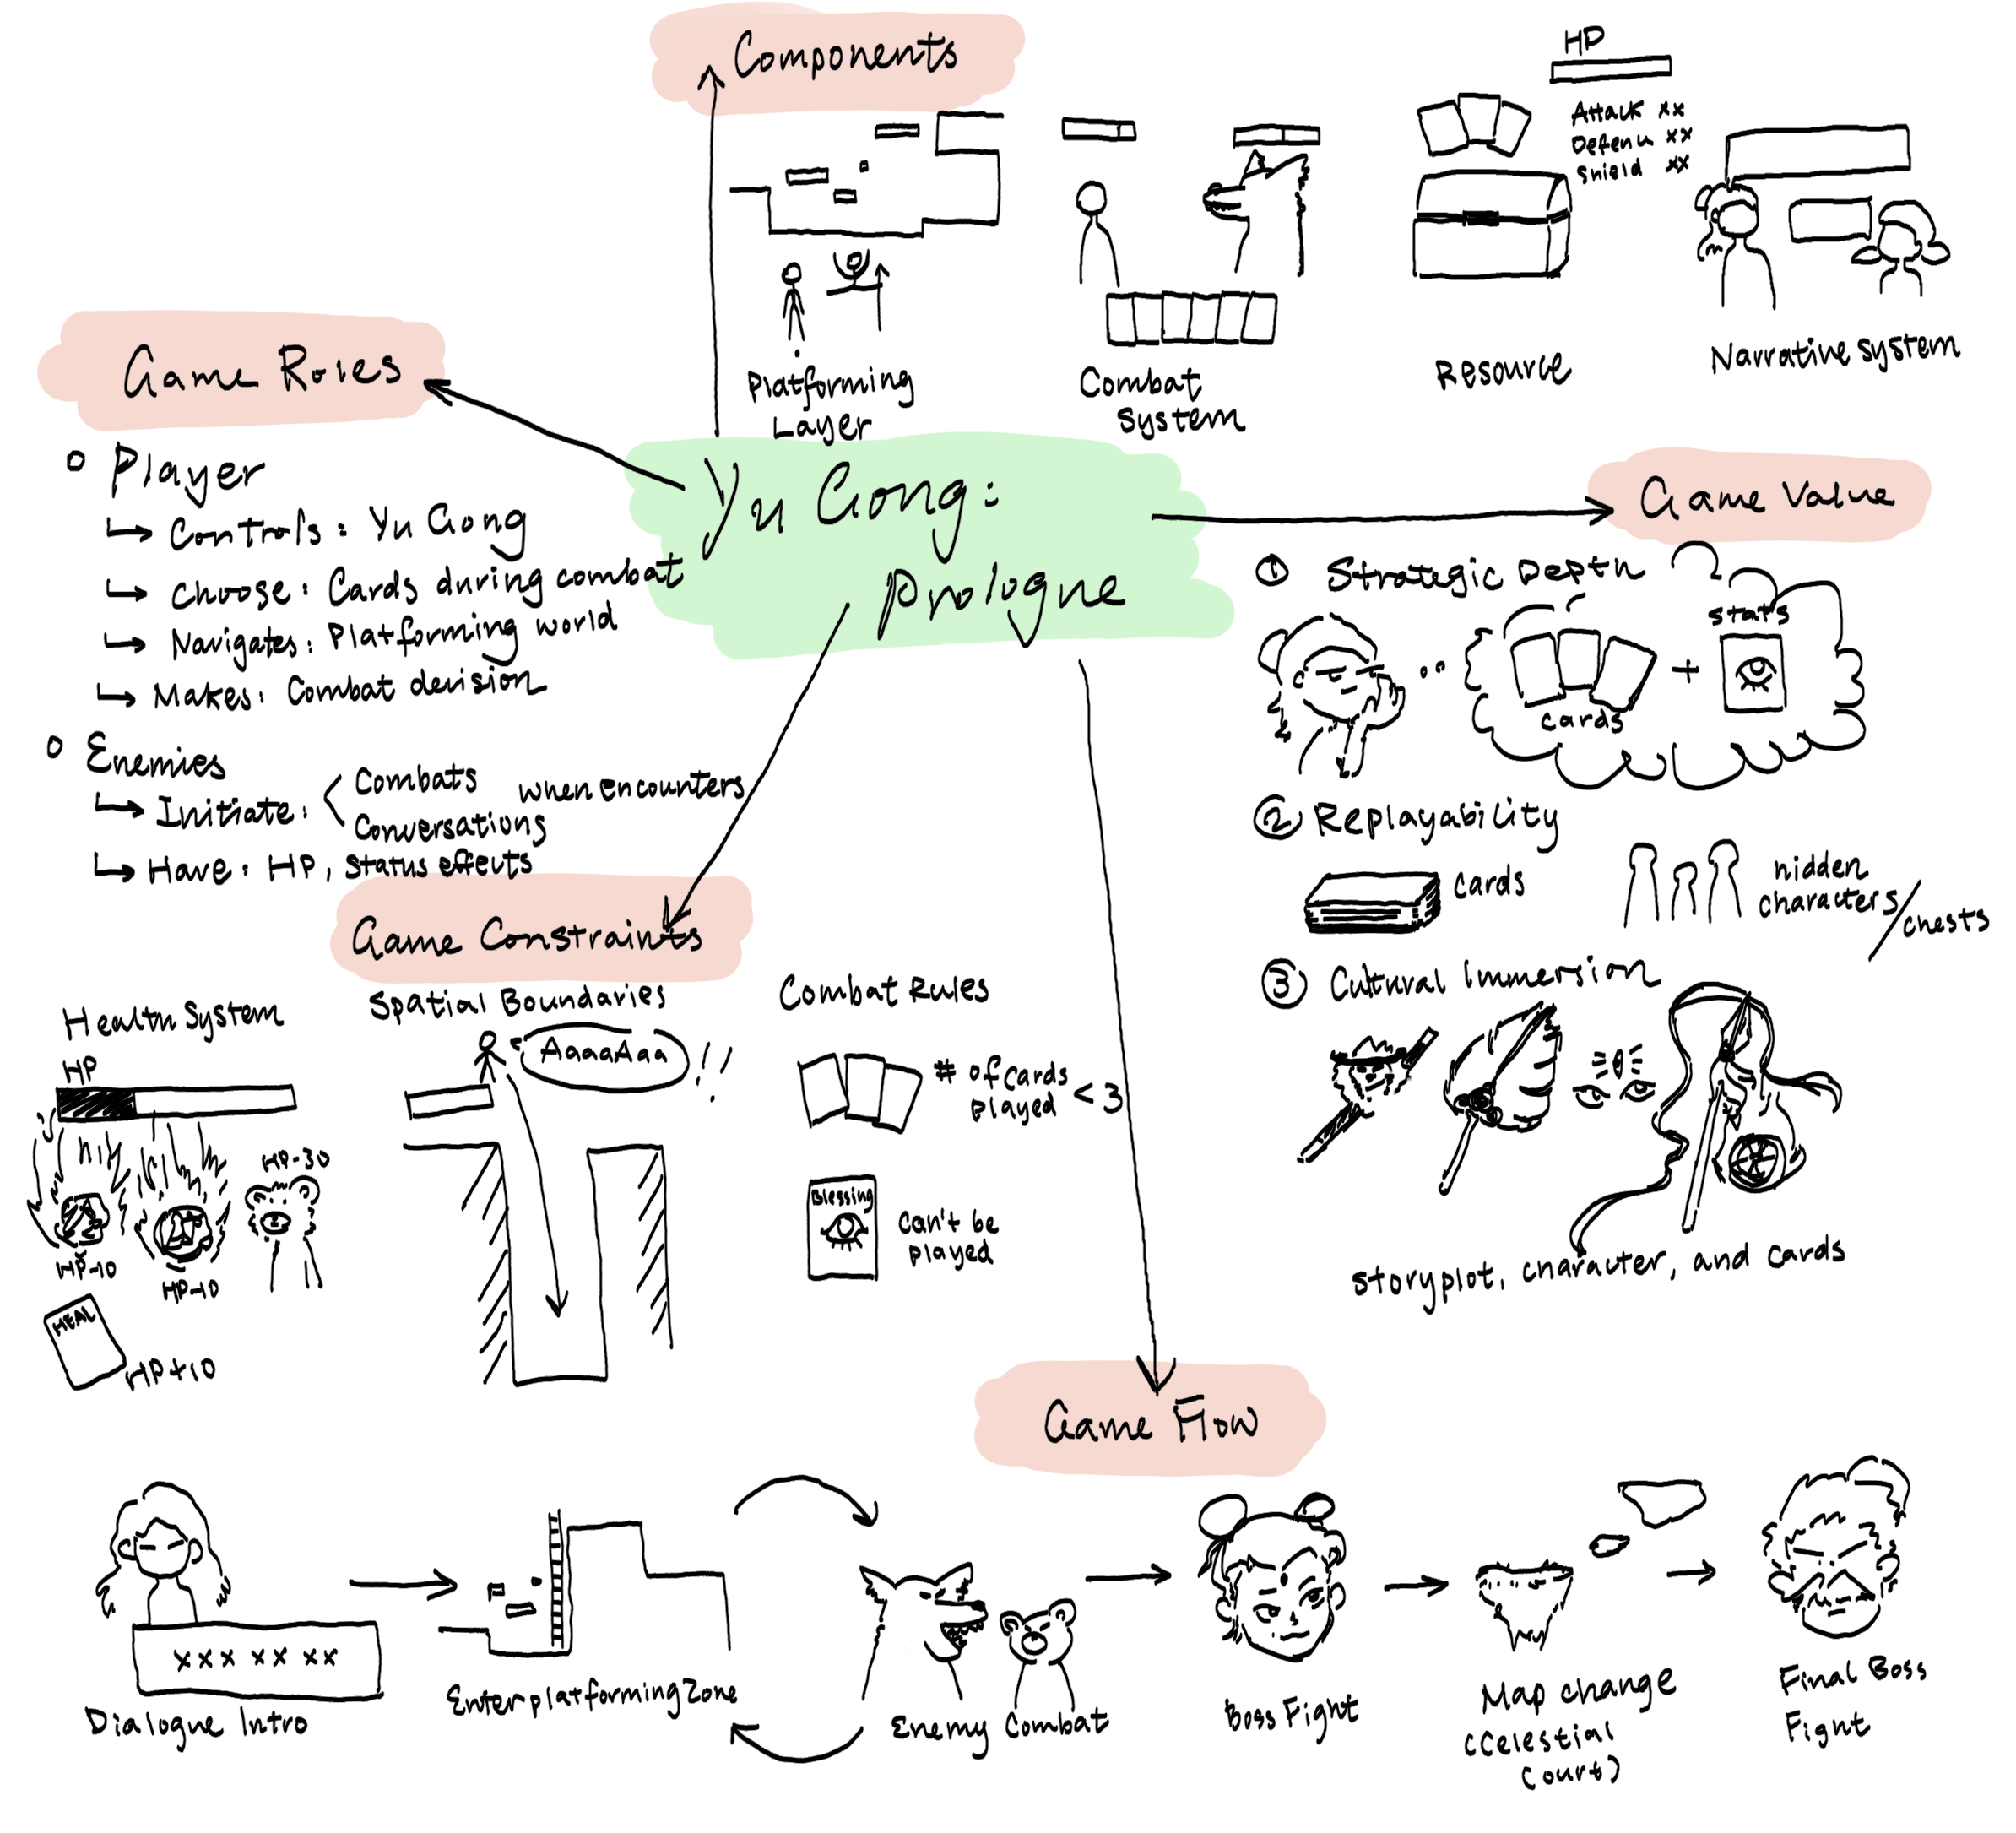 Components
HP
Attack xx
Defenu xx
Shield xx
Platforming
Layer
Combat
System
Resource
Narrative system
Game Roles
Player
Controls: Yu Gong
Choose: Cards during combat
Navigates: Platforming world
Makes: Combat decision
Enemies
Initiate: Combats
Conversations
when encounters
Have: HP, Status effects
Yu Gong:
Prologue
Game Value
① Strategic Depth
stats
+
cards
② Replayability
cards
hidden
characters/
chests
③ Cultural Immersion
storyplot, character, and cards
Game Constraints
Health System
HP
HP-30
HP-10
HP-10
HEAL
HP+10
Spatial Boundaries
AaaaAaa
!!
Combat Rules
# of cards
played < 3
Blessing
can't be
played
Game Flow
xxx xx xx
Dialogue Intro
Enter platforming Zone
Enemy Combat
Boss Fight
Map change
(Celestial
Court)
Final Boss
Fight